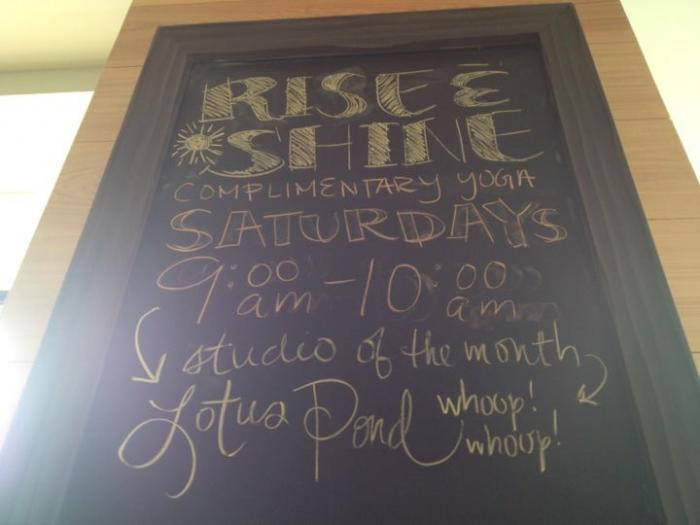 RISE &
SHINE
COMPLIMENTARY YOGA
SATURDAYS
9:00 am - 10:00 am
studio of the month
Lotus Pond whoop!
whoop!